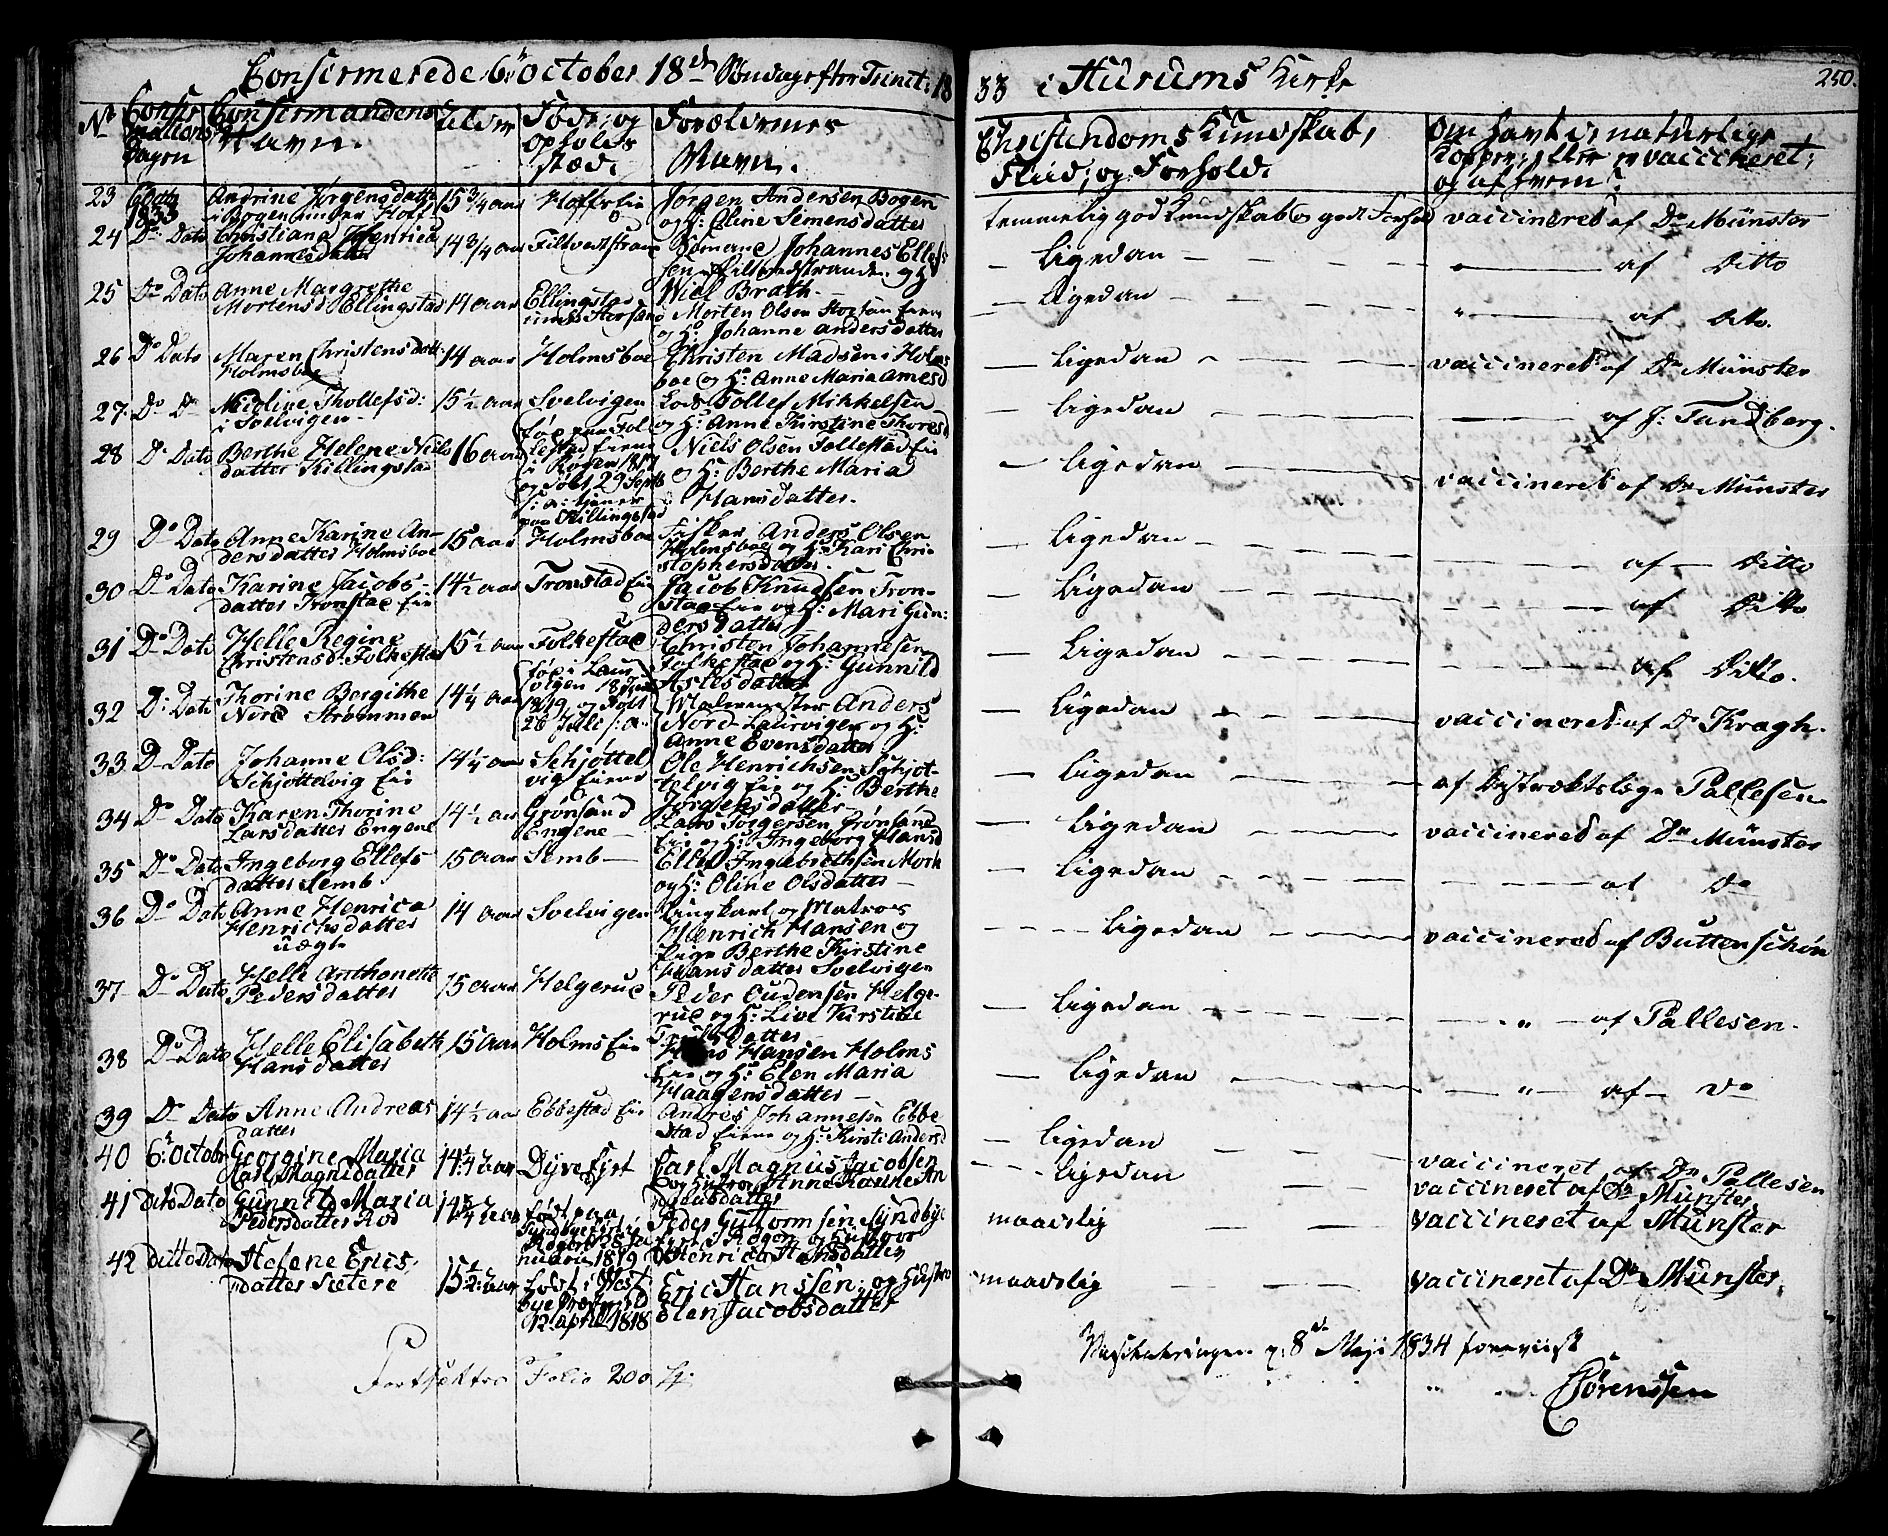 Confirmerede 6te October 18de Søndag efter Trinit: 1833 i Hurums Kirke
250.
No
Confirmations Dagen
Confirmandens Navn.
Alder
Føde; og Opholds stæd;
Forældrenes Navn.
Christendoms Kundskab, Flid; og Forhold.
Om havt de naturlige Kopper; eller er vaccineret; og af hvem?
23 6 Octb 1833 Andrine Jørgensdatter Bogen under Hoff 15 3/4 aar Hoff Eie Jørgen Andersen Bogen og H: Eline Semensdatter temmelig god Kundskab og godt Forhold vaccineret af Dr Münster
24 Do Dato Christiana Henrica Johannesdatter 14 3/4 aar Filtvedtstrand Johannes Ellefsen Filtvedstranden og H Niel Brath - ligedan af Ditto
25 Do Dato Anne Margrethe Mortensd Ellingstad 14 aar Ellingstad Morten Olsen og H: Johanne Andersdatter - ligedan af dito.
26 Do Dato Maren Christensdatt: Holmsboe 14 aar Holmsboe Christen Madsen i Holmsboe og H: Anne Maria Arnesd - ligedan vaccineret af Dr Münster
27 Do Do Nicoline Thollefsd: i Svelvigen 15 1/2 aar Svelvigen Lods Tollef Mikkelsen og H: Anne Kirstine Thoresd - ligedan af J: Tandberg.
28 Do Dato Berthe Helene Nielsdatter Killingstad 16 aar fød paa Tollestad Eiene i Rogen 1817 og døbt 29 Septb s: a: tjener paa Killingstad Niels Olsen Tollestad Eie og H: Berthe Maria Hansdatter. - ligedan vaccineret af Dr Münster
29 Do Dato Anne Karine Andersdatter Holmsboe 15 aar Holmsboe Fisker Anders Olsen Holmsboe og H: Kari Christophersdatter. - ligedan af Ditto
30 Do Dato Karine Jacobsdatter Tronstad Eie 14 1/2 aar Tronstad Eie Jacob Knudsen Tronstad Eie og H: Mari Gundersdatter - ligedan af Ditto
31 Do Dato Helle Regine Christensd: Folkestad 15 1/2 aar Folkestad Christen Johannesen Folkestad og H: Gunnild Aslesdatter - ligedan af Ditto.
32 Do Dato Thorine Bergithe Nord Strømmen 14 1/4 aar fød i Laurvigen 18 Juni 1819 og døbt 26 Julii s: a: Malermester Anders Nord Laurvigen og H: Anne Evensdatter - ligedan vaccineret af Dr Kragh.
33 Do Dato Johanne Olsd: Schjøttelvig Eie 14 1/4 aar Schjøttelvig Eiene Ole Henrichsen Schjøttelvig Eie og H: Berthe Jørgensdatter - ligedan af Distrektslæge Pallesen
34 Do Dato Karen Thorine Larsdatter Engene 14 1/2 aar Grønsand Engene Lars Torgersen Grønsand Eie og H: Ingeborg Hansd - ligedan vaccineret af Dr Münster
35 Do Dato Ingeborg Ellefsdatter Semb 15 aar Semb Ellef Ingebrethsen Mork og H: Oline Olsdatter - ligedan af Do
36 Do Dato Anne Henrica Henrichsdatter uægte 14 aar Svelvigen Ungkarl og Matros Henrich Hansen og Pige Berthe Kirstine Hansdatter Svelvigen - ligedan vaccineret af Buttenschøn
37 Do Dato Helle Anthonette Pedersdatter 15 aar Helgerud Peder Oudensen Helgerud og H: Live Kirstine - ligedan af Pallesen.
38 Do Dato Helle Elisabeth Hansdatter 15 aar Holms Eie Hans Hansen Holms Eie og H: Elen Maria Haagensdatter - ligedan af Do
39 Do Dato Anne Andreasdatter 14 1/2 aar Ebbestad Eie Andreas Johannesen Ebbestad Eiene og H: Kirsti Andersd - ligedan vaccineret af Dr Pallesen
40 6: October Georgine Maria Carl Magnusdatter 14 1/2 aar Dyvefirt Carl Magnus Jacobsen og Hustro Anne Karine - ligedan vaccineret af Dr Münster
41 dito Dato Gunnild Maria Pedersdatter Rød 14 3/4 aar født paa Januarii 1819 Peder Guttormsen Syndbye og Hustroe Henrica Hansdatter maadelig vaccineret af Münster
42 ditto Dato Helene Ericsdatter Sætere 15 1/2 aar født i Vestbye Præstegield 12 April 1818 Eric Hanssen; og Hustro Elen Jacobsdatter maadelig vaccineret af Dr Münster.
Fortsættes Folio 200
8de Maji 1834 foreviist
Sørenssen